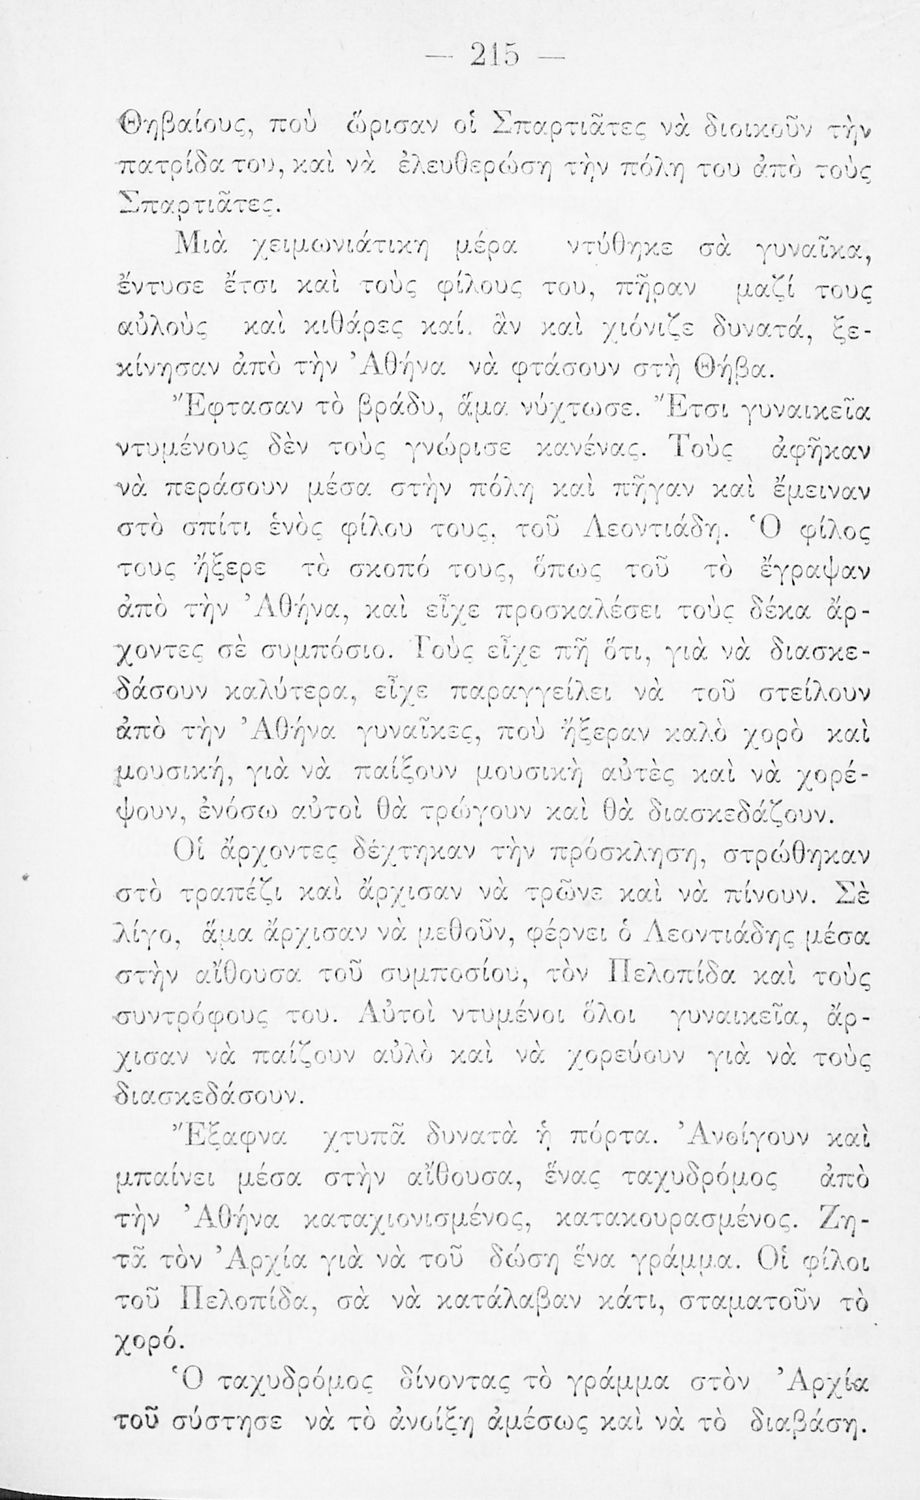 — 215 —
Θηβαίους, ποὺ ὥρισαν οἱ Σπαρτιᾶτες νὰ διοικοῦν τὴν
πατρίδα του, καὶ νὰ ἐλευθερώσῃ τὴν πόλη του ἀπὸ τοὺς
Σπαρτιᾶτες.
Μιὰ χειμωνιάτικη μέρα ντύθηκε σὰ γυναῖκα,
ἔντυσε ἔτσι καὶ τοὺς φίλους του, πῆραν μαζί τους
αὐλοὺς καὶ κιθάρες καί. ἂν καὶ χιόνιζε δυνατά, ξε-
κίνησαν ἀπὸ τὴν Ἀθήνα νὰ φτάσουν στὴ Θήβα.
Ἔφτασαν τὸ βράδυ, ἅμα νύχτωσε. Ἔτσι γυναικεῖα
ντυμένους δὲν τοὺς γνώρισε κανένας. Τοὺς ἀφῆκαν
νὰ περάσουν μέσα στὴν πόλη καὶ πῆγαν καὶ ἔμειναν
στὸ σπίτι ἑνὸς φίλου τους, τοῦ Λεοντιάδη. Ὁ φίλος
τους ἤξερε τὸ σκοπό τους, ὅπως τοῦ τὸ ἔγραψαν
ἀπὸ τὴν Ἀθήνα, καὶ εἶχε προσκαλέσει τοὺς δέκα ἄρ-
χοντες σὲ συμπόσιο. Τοὺς εἶχε πῆ ὅτι, γιὰ νὰ διασκε-
δάσουν καλύτερα, εἶχε παραγγείλει νὰ τοῦ στείλουν
ἀπὸ τὴν Ἀθήνα γυναῖκες, ποὺ ἤξεραν καλὸ χορὸ καὶ
μουσική, γιὰ νὰ παίξουν μουσικὴ αὐτὲς καὶ νὰ χορέ-
ψουν, ἐνόσω αὐτοὶ θὰ τρώγουν καὶ θὰ διασκεδάζουν.
Οἱ ἄρχοντες δέχτηκαν τὴν πρόσκληση, στρώθηκαν
στὸ τραπέζι καὶ ἄρχισαν νὰ τρῶνε καὶ νὰ πίνουν. Σὲ
λίγο, ἅμα ἄρχισαν νὰ μεθοῦν, φέρνει ὁ Λεοντιάδης μέσα
στὴν αἴθουσα τοῦ συμποσίου, τὸν Πελοπίδα καὶ τοὺς
συντρόφους του. Αὐτοὶ ντυμένοι ὅλοι γυναικεῖα, ἄρ-
χισαν νὰ παίζουν αὐλὸ καὶ νὰ χορεύουν γιὰ νὰ τοὺς
διασκεδάσουν.
Ἔξαφνα χτυπᾶ δυνατὰ ἡ πόρτα. Ἀνοίγουν καὶ
μπαίνει μέσα στὴν αἴθουσα, ἕνας ταχυδρόμος ἀπὸ
τὴν Ἀθήνα καταχιονισμένος, κατακουρασμένος. Ζη-
τᾶ τὸν Ἀρχία γιὰ νὰ τοῦ δώσῃ ἕνα γράμμα. Οἱ φίλοι
τοῦ Πελοπίδα, σὰ νὰ κατάλαβαν κάτι, σταματοῦν τὸ
χορό.
Ὁ ταχυδρόμος δίνοντας τὸ γράμμα στὸν Ἀρχία
τοῦ σύστησε νὰ τὸ ἀνοίξῃ ἀμέσως καὶ νὰ τὸ διαβάσῃ.